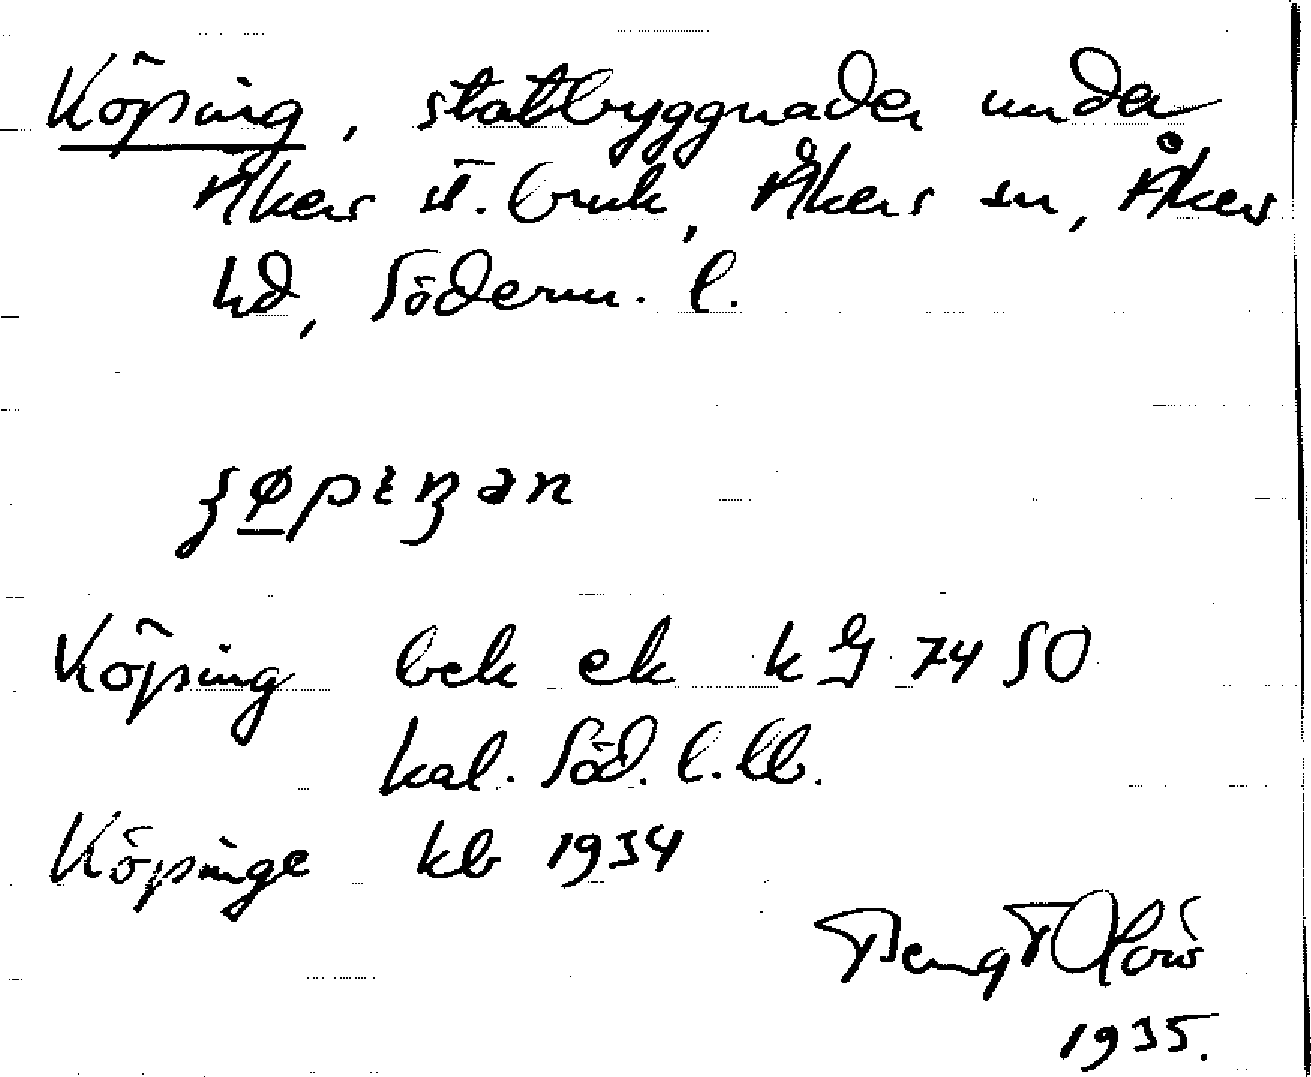 Köping, statbyggnader under
Åkers st. bruk, Åkers sn, Åkers
hd, Söderm. l.
ʃø̱pıŋən
Köping bek ek kG 74 50
kal. Söd. l. lb.
Köpinge kb 1934
Bengt
1935.